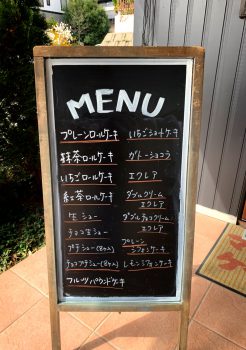 MENU
プレーンロールケーキ
抹茶ロールケーキ
いちごロールケーキ
紅茶ロールケーキ
生シュー
チョコ生シュー
プチシュー(8ヶ入)
チョコプチシュー(8ヶ入)
フルーツパウンドケーキ
いちごショートケーキ
ガトーショコラ
エクレア
ダブルクリーム
エクレア
ダブルチョコクリーム
エクレア
プレーン
シフォンケーキ
レモンシフォンケーキ